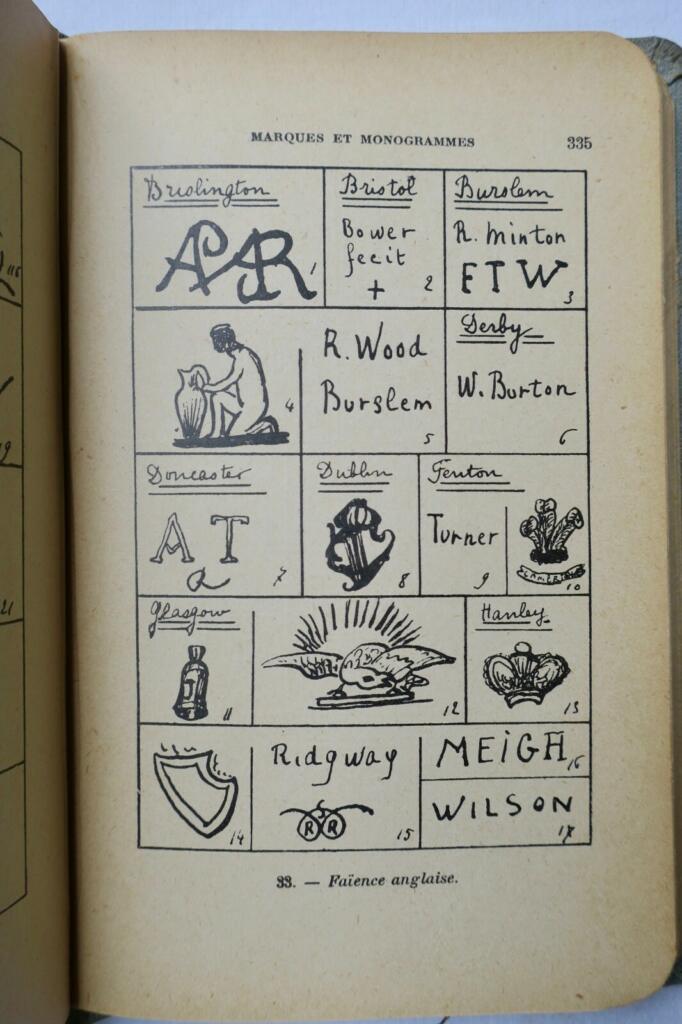 MARQUES ET MONOGRAMMES 335
Brislington
APR 1
Bristol
Bower
fecit
+ 2
Burslem
R. Minton
FTW 3
4
R. Wood
Burslem 5
Derby
W. Burton
6
Doncaster
A T
7
Dublin
8
Fenton
Turner
9
10
Glasgow
11
12
Hanley
13
14
Ridgway
R S R
15
MEIGH 16
WILSON
17
33. — Faïence anglaise.